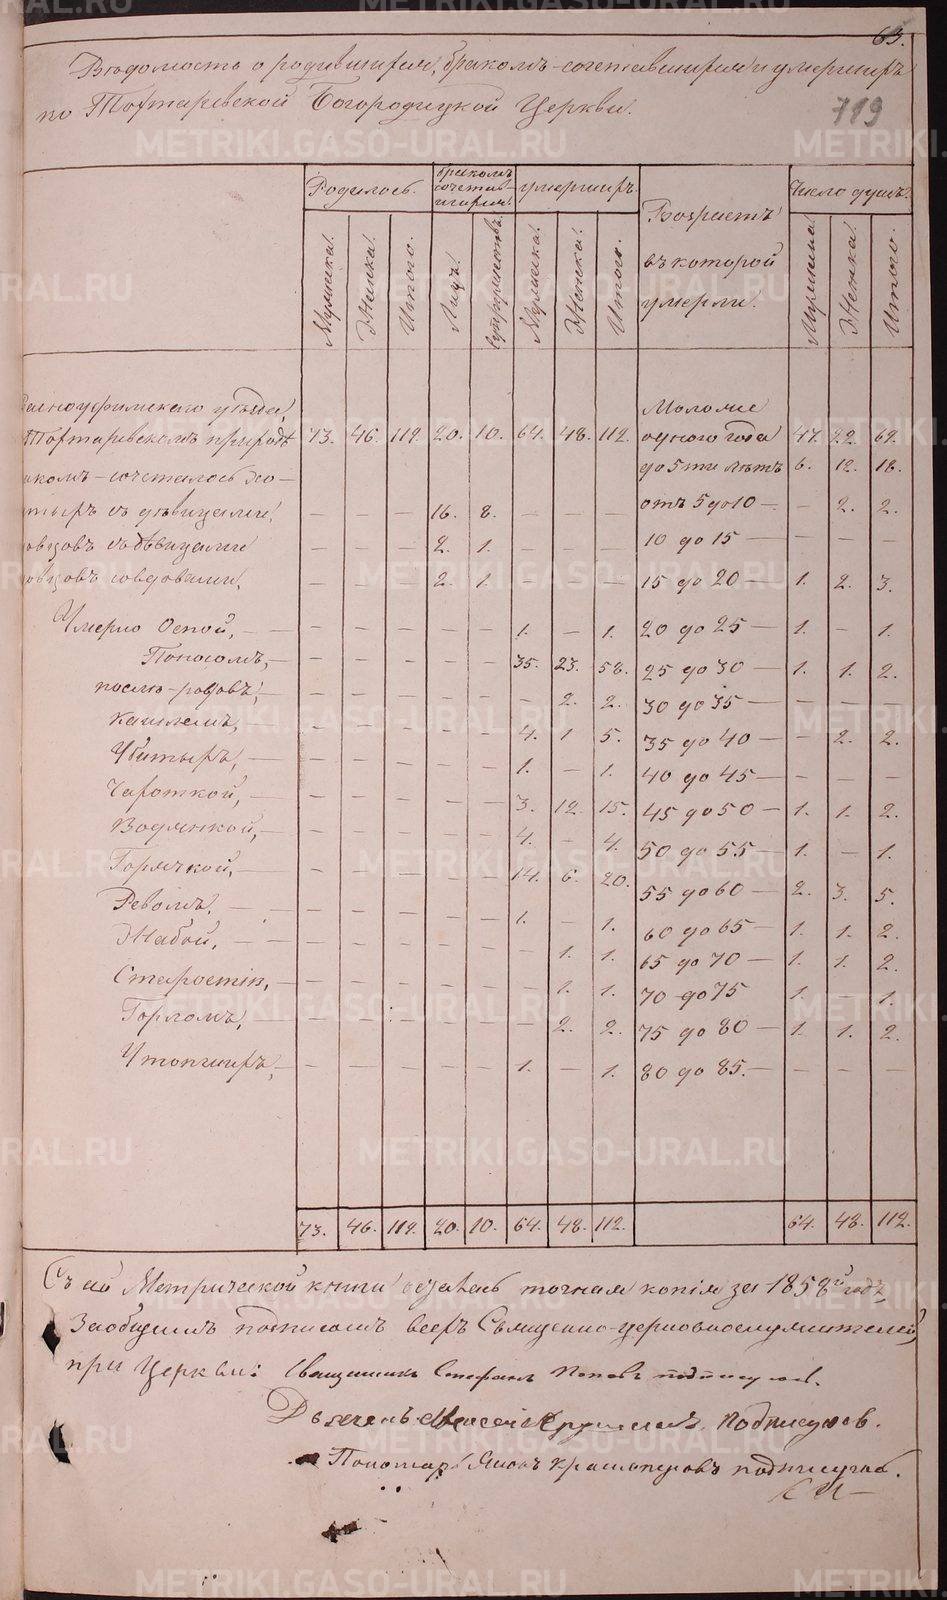 63.
Ведомость о родившихся, бракомъ-сочетавшихся и умершихъ
по Тохтаревской Богородицкой Церкви.
719
Родилось. бракомъ сочетавшихся. умершихъ Возрастъ въ которой умерли. Число душъ.
Мужеска. Женска. Итого. Лицъ. Супружествъ. Мужеска. Женска. Итого. Мужеска. Женска. Итого.
сноуфимскаго уезда, Моложе
Тохтаревскомъ приходе 73. 46. 119. 20. 10. 64. 48. 112. одного года 47. 22. 69.
акомъ-сочеталось хо- до 5ти летъ 6. 12. 18.
стыхъ съ девицами, — — — 16. 8. — — — отъ 5 до 10 — — 2. 2.
овцовъ съ девицами — — — 2. 1. — — — 10 до 15 — — — —
овцовъ со вдовами, — — — 2. 1. — — — 15 до 20 — 1. 2. 3.
Умерло Оспой, — — — — — — 1. — 1. 20 до 25 — 1. — 1.
Поносомъ, — — — — — — 35. 23. 58. 25 до 30 — 1. 1. 2.
после-родовъ, — — — — — — 2. 2. 30 до 35 — — — —
кашлемъ, — — — — — 4. 1 5. 35 до 40 — — 2. 2.
Убитыхъ, — — — — — — 1. — 1. 40 до 45 — — — —
Чахоткой, — — — — — — 3. 12. 15. 45 до 50 — 1. 1. 2.
Водянкой, — — — — — — 4. — 4. 50 до 55 — 1. — 1.
Горячкой, — — — — — — 14. 6. 20. 55 до 60 — 2. 3. 5.
Ревомъ, — — — — — — 1. — 1. 60 до 65 — 1. 1. 2.
Жабой, — — — — — — — 1. 1. 65 до 70 — 1. 1. 2.
Старостію, — — — — — — 1. 1. 70 до 75 1. — 1.
Горломъ, — — — — — — 2. 2. 75 до 80 — 1. 1. 2.
Утопшихъ, — — — — — — 1. — 1. 80 до 85. — — — —
73. 46. 119. 20. 10. 64. 48. 112. 64. 48. 112.
Съ сей Метрической книги точная копія за 1858й годъ,
Заобщимъ подписомъ всехъ Священно-церковнослужителей
при Церкви: Священникъ Стефанъ Поповъ подписуюсь.
подписуюсь.
Пономарь подписуюсь.
METRIKI.GASO-URAL.RU